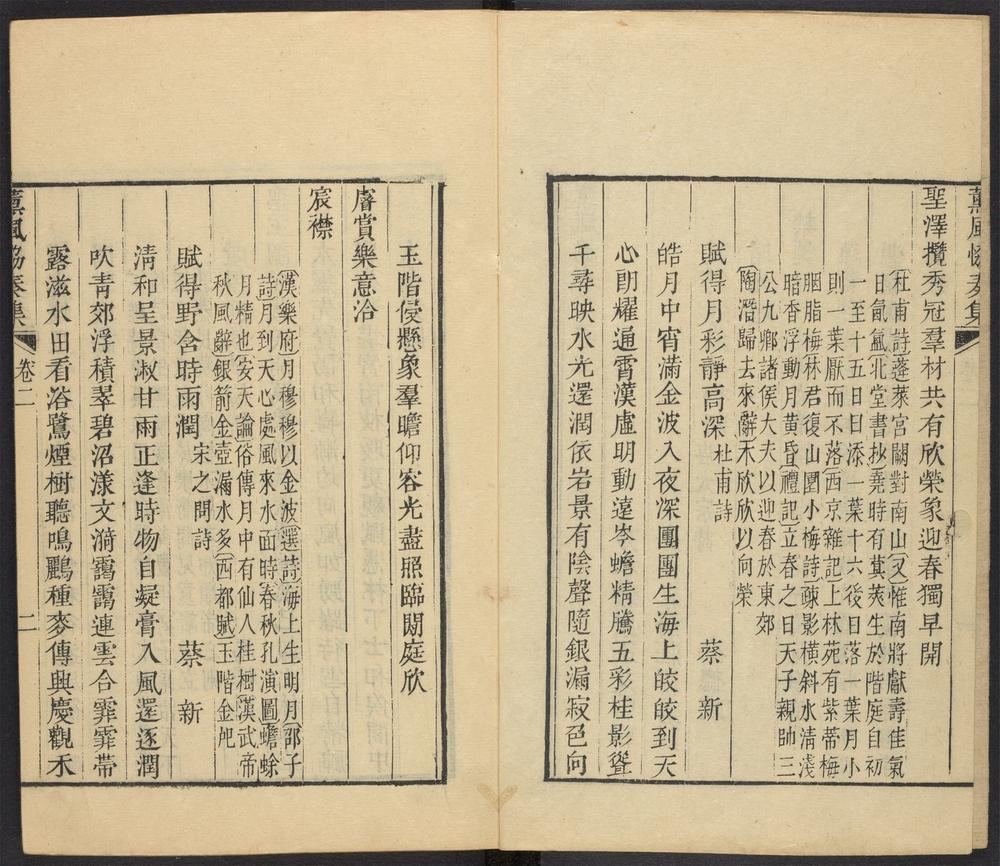 薰風協奏集
聖澤攬秀冠羣材共有欣榮象迎春獨早開
杜甫詩蓬萊宮闕對南山又惟南將獻壽佳氣
日氤氳北堂書抄堯時有蓂莢生於階庭自初
一至十五日日添一葉十六後日落一葉月小
則一葉厭而不落西京雜記上林苑有紫蒂梅
胭脂梅林君復山園小梅詩疎影橫斜水清淺
暗香浮動月黃昏禮記立春之日天子親帥三
公九卿諸侯大夫以迎春於東郊
陶潛歸去來辭木欣欣以向榮
賦得月彩靜高深杜甫詩 蔡新
皓月中宵滿金波入夜深團團生海上皎皎到天
心朗耀通霄漢虛明動遠岑蟾精騰五彩桂影聳
千尋映水光還潤依岩景有陰聲隨銀漏寂色向
玉階侵懸象羣瞻仰容光盡照臨閎庭欣
睿賞樂意洽
宸襟
漢樂府月穆穆以金波選詩海上生明月邵子
詩月到天心處風來水面時春秋孔演圖蟾蜍
月精也安天論俗傳月中有仙人桂樹漢武帝
秋風辭銀箭金壺漏水多西都賦玉階金戺
賦得野含時雨潤宋之問詩 蔡新
淸和呈景淑甘雨正逢時物自凝膏入風還逐潤
吹青郊浮積翠碧沼漾文漪靄靄連雲合霏霏帶
露滋水田看浴鷺煙樹聽鳴鸝種麥傳興慶觀禾
薰風協奏集 卷二 二